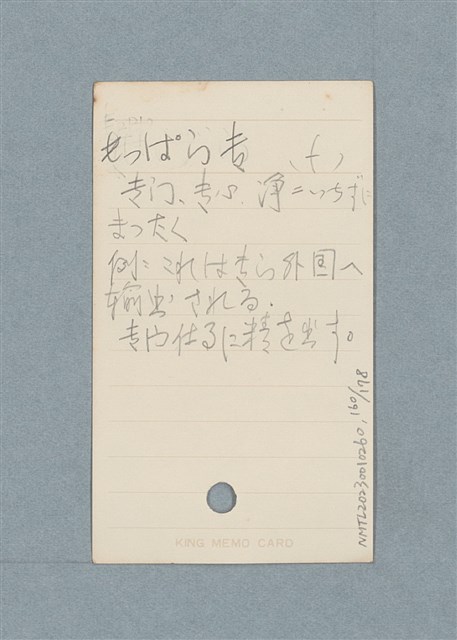 もっぱら 専 (七)
専门、専心、浄=いちずに
まったく
例: これは専ら外国へ
輸出される.
専ら仕るに精を出す。
KING MEMO CARD
NMTL20230010260, 160/178